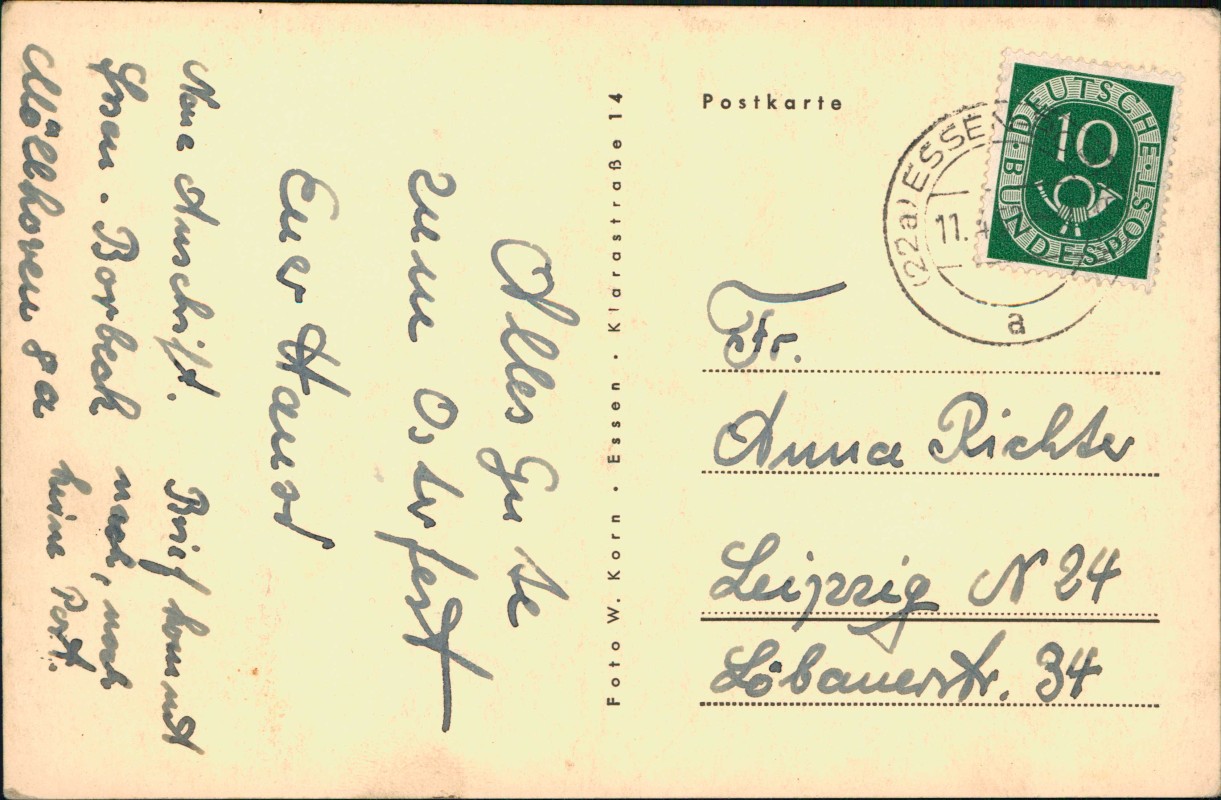 Alles Gute
zum Osterfest
Euer Hans
Neue Anschrift.
Essen-Borbeck
Möllhoven 8a
Brief kommt
nach, noch
keine Post.
Foto W. Korn · Essen · Klarastraße 14
Postkarte
DEUTSCHE·BUNDESPOST
10
(22a) ESSEN
11.4
a
Fr.
Anna Richter
Leipzig N 24
Löbauerstr. 34